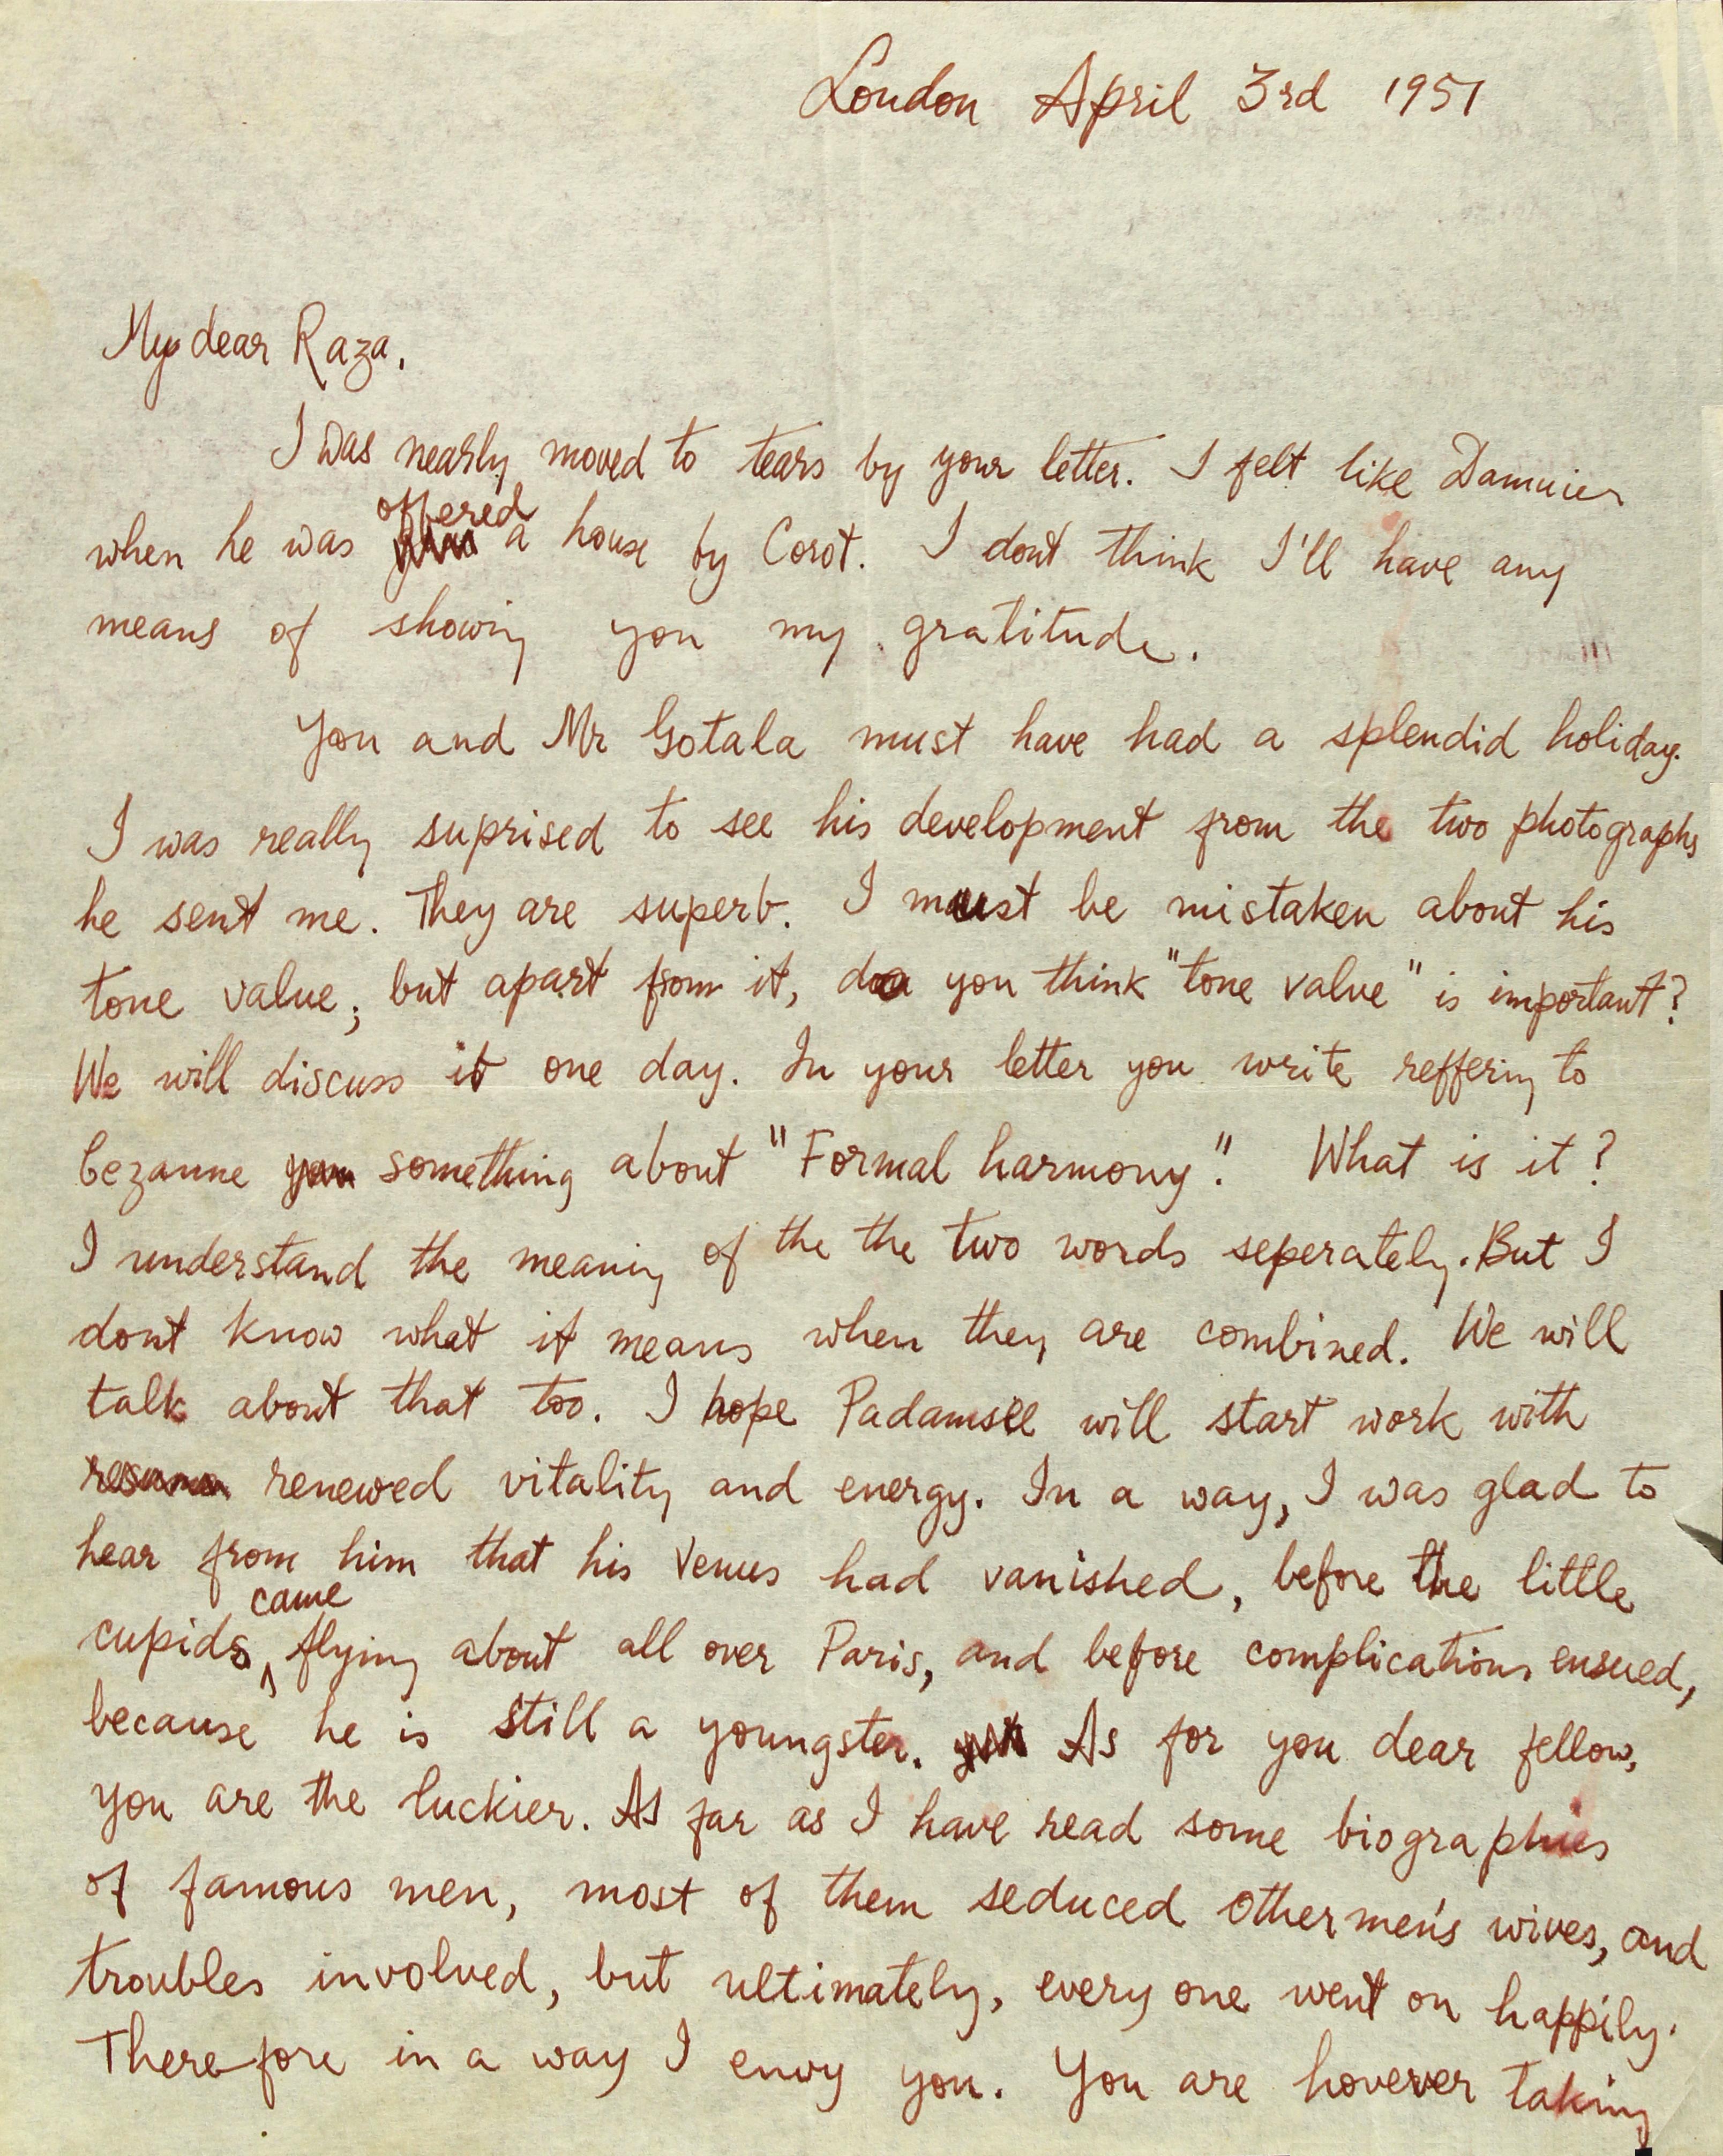 London April 3rd 1951
My dear Raza,
I was nearly moved to tears by your letter. I felt like Damuier
offered
when he was a house by Corot. I dont think I'll have any
means of showing you my gratitude.
You and Mr Gotala must have had a splendid holiday.
I was really suprised to see his development from the two photographs
he sent me. They are superb. I must be mistaken about his
tone value; but apart from it, do you think "tone value" is important?
We will discuss it one day. In your letter you write reffering to
Cezanne something about "Formal harmony". What is it?
I understand the meaning of the the two words seperately. But I
dont know what it means when they are combined. We will
talk about that too. I hope Padamsee will start work with
renewed vitality and energy. In a way, I was glad to
hear from him that his Venus had vanished, before the little
came
cupids flying about all over Paris, and before complications ensued,
because he is still a youngster. As for you dear fellow,
you are the luckier. As far as I have read some biographies
of famous men, most of them seduced other men's wives, and
troubles involved, but ultimately, every one went on happily.
Therefore in a way I envy you. You are hoverver taking